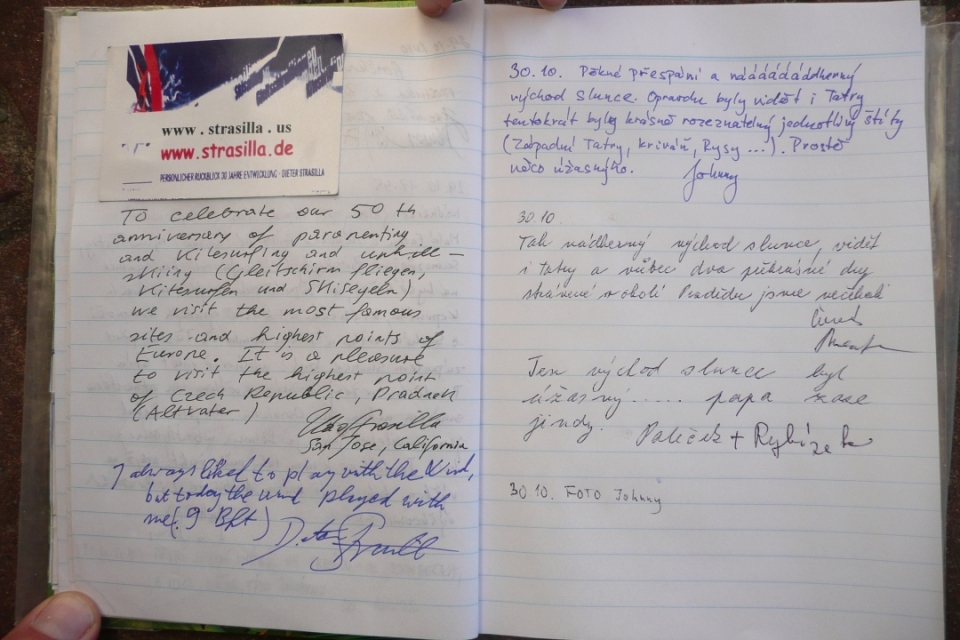 www.strasilla.us
www.strasilla.de
PERSÖNLICHER RÜCKBLICK 30 JAHRE ENTWICKLUNG - DIETER STRASILLA
To celebrate our 50th
anniversary of paramenting
and Kitesurfing and uphill-
skiing (Gleitschirmfliegen,
Kitesurfen und Skisegeln)
we visit the most famous
sites and highest points of
Europe. It is a pleasure
to visit the highest point
of Czech Republic, Praded
(Altvater)
Strasilla
San Jose, California
I always liked to play with the Wind,
but today the wind played with
me (9 Bft)
30.10. Pěkné přespání a nádádádádherný
východ slunce. Opravdu byly vidět i Tatry
tentokrát byly krásně rozeznatelný jednotlivý štíty
(Západní Tatry, Kriváň, Rysy ...). Prostě
něco úžasnýho. Johnny
30.10.
Tak nádherný východ slunce, vidět
i tatry a vůbec dva překrásné dny
strávené v okolí Pradědu jsme nečekali
Ten východ slunce byl
úžasný..... papa zase
jindy. Paleček + Rybízek
30.10. FOTO Johnny